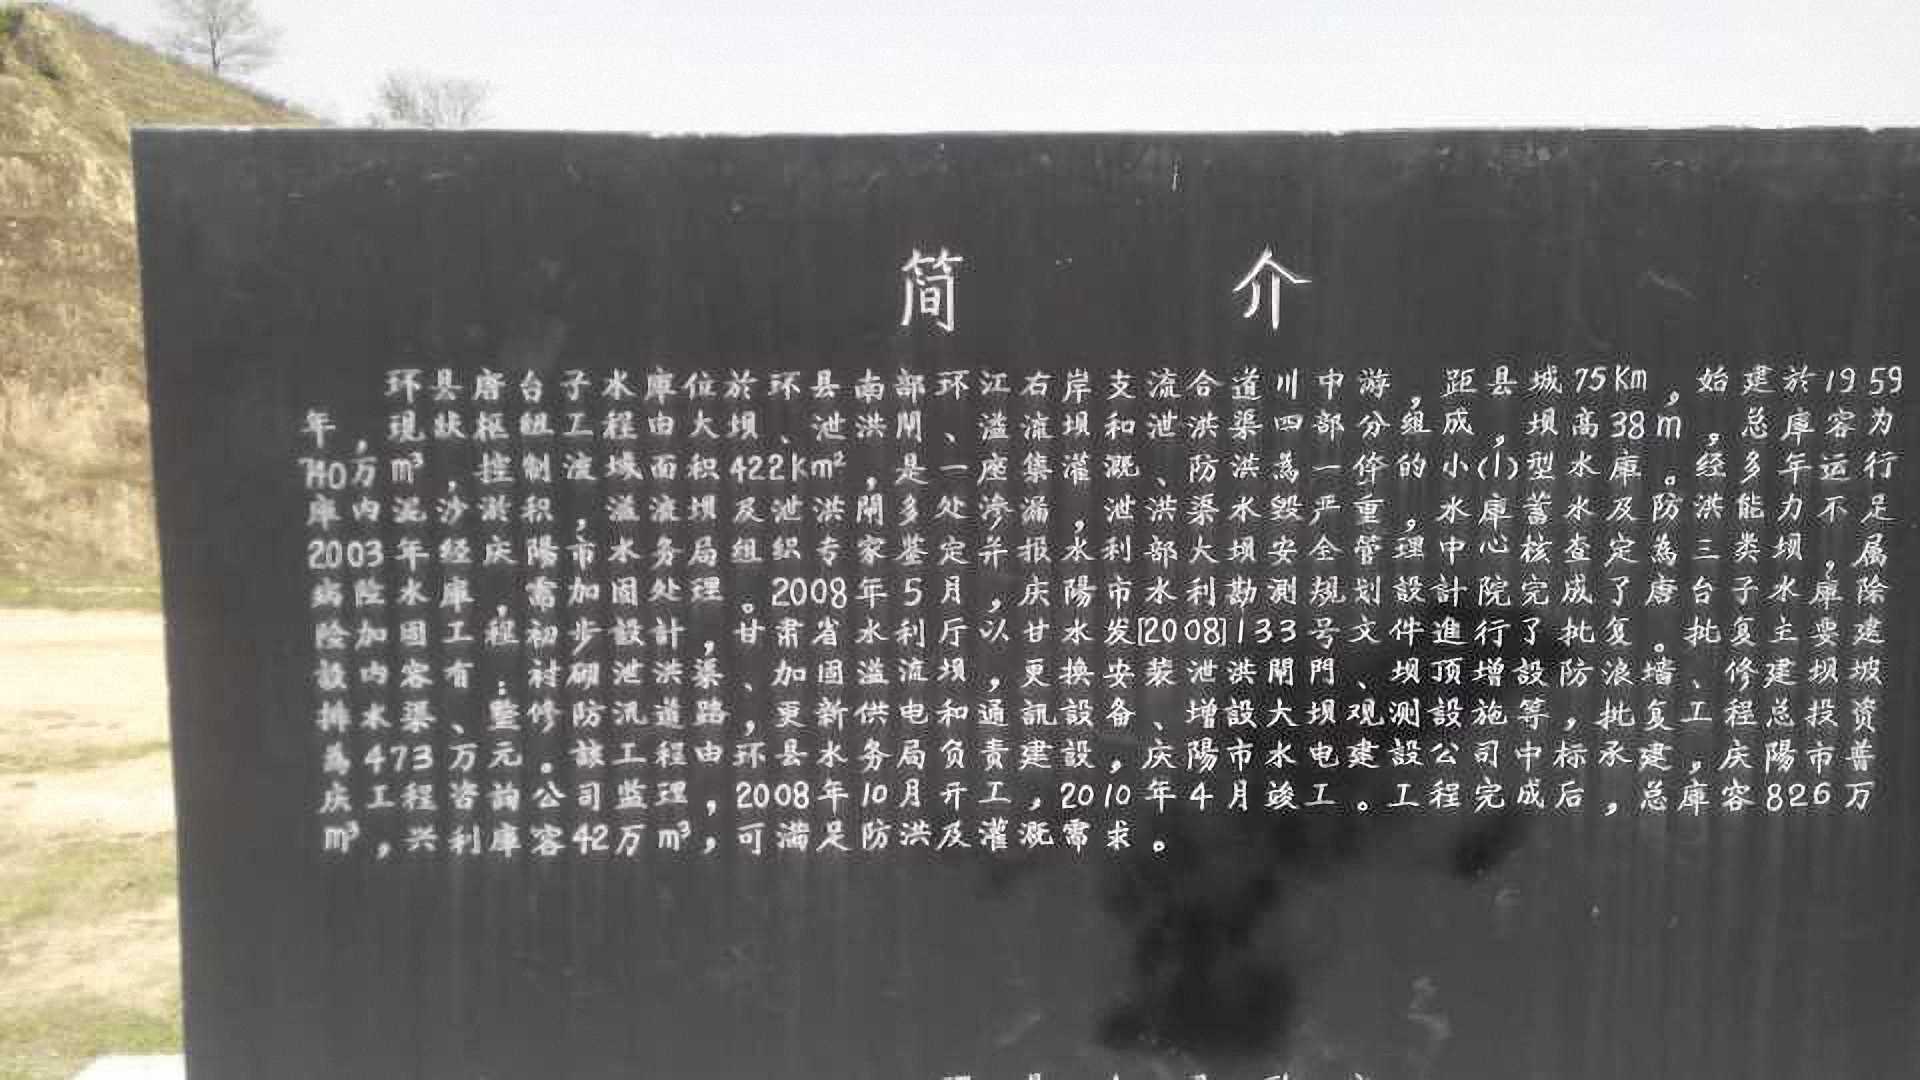 简 介
环县唐台子水庫位於环县南部环江右岸支流合道川中游，距县城75Km，始建於1959
年，現狀枢組工程由大坝、泄洪閘、溢流坝和泄洪渠四部分组成，坝高38m，总庫容为
740万m³，控制流域面积422km²，是一座集灌溉、防洪為一体的小(1)型水庫。经多年运行
庫内泥沙淤积，溢流坝及泄洪閘多处渗漏，泄洪渠水毁严重，水庫蓄水及防洪能力不足
2003年经庆陽市水务局组织专家鉴定并报水利部大坝安全管理中心核查定為三类坝，属
病险水庫，需加固处理。2008年5月，庆陽市水利勘测规划設計院完成了唐台子水庫除
险加固工程初步設計，甘肃省水利厅以甘水发[2008]133号文件進行了批复。批复主要建
設内容有：衬砌泄洪渠、加固溢流坝，更换安装泄洪閘門、坝顶增設防浪墙、修建坝坡
排水渠、整修防汛道路，更新供电和通訊設备、增設大坝观测設施等，批复工程总投资
為473万元。該工程由环县水务局负责建設，庆陽市水电建設公司中标承建，庆陽市普
庆工程咨詢公司监理，2008年10月开工，2010年4月竣工。工程完成后，总庫容826万
m³，兴利庫容42万m³，可满足防洪及灌溉需求。